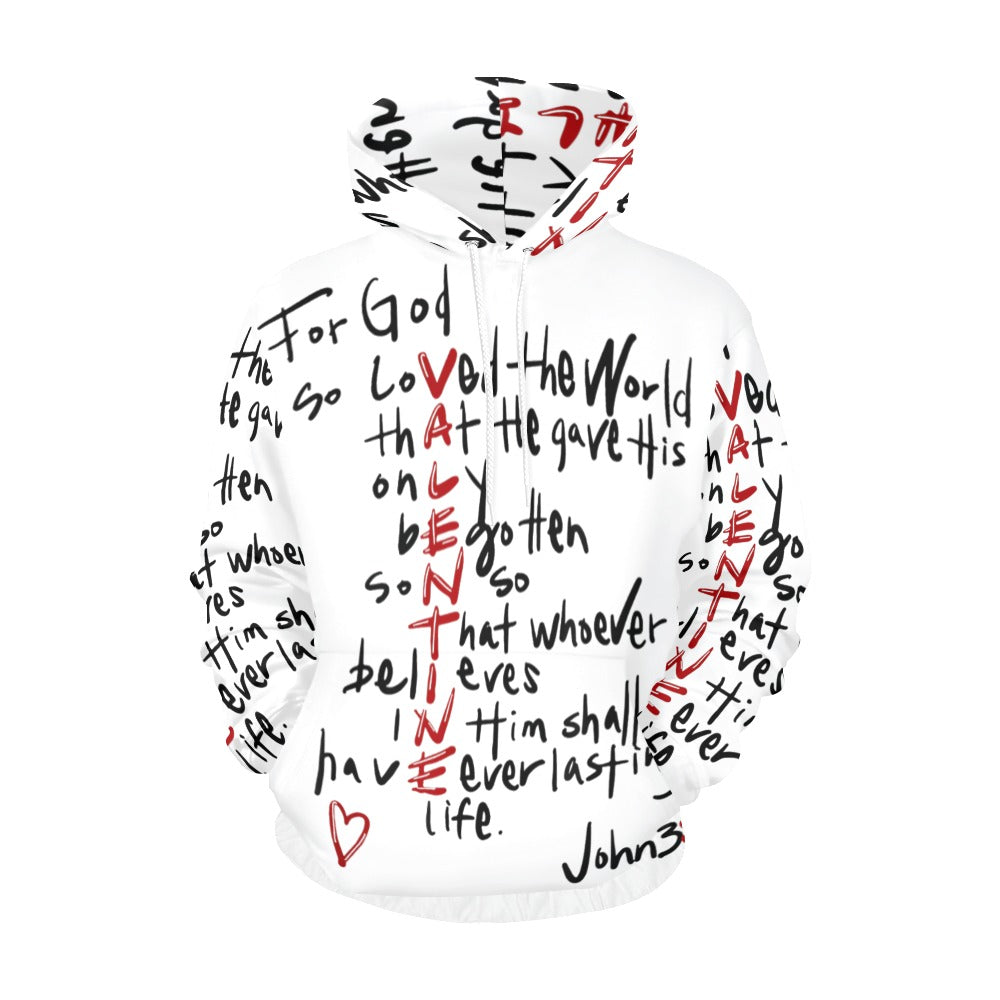 For God
so LoVed the World
thAt He gave His
onLy
bEgotten
soN so
That whoever
belIeves
iN Him shall
havE everlasti
life.
John 3
the
He gav
tten
so
at whoev
Him sh
ever la
life.
Ved
hAt
nLy
bEgo
soN so
That
Ieves
ever